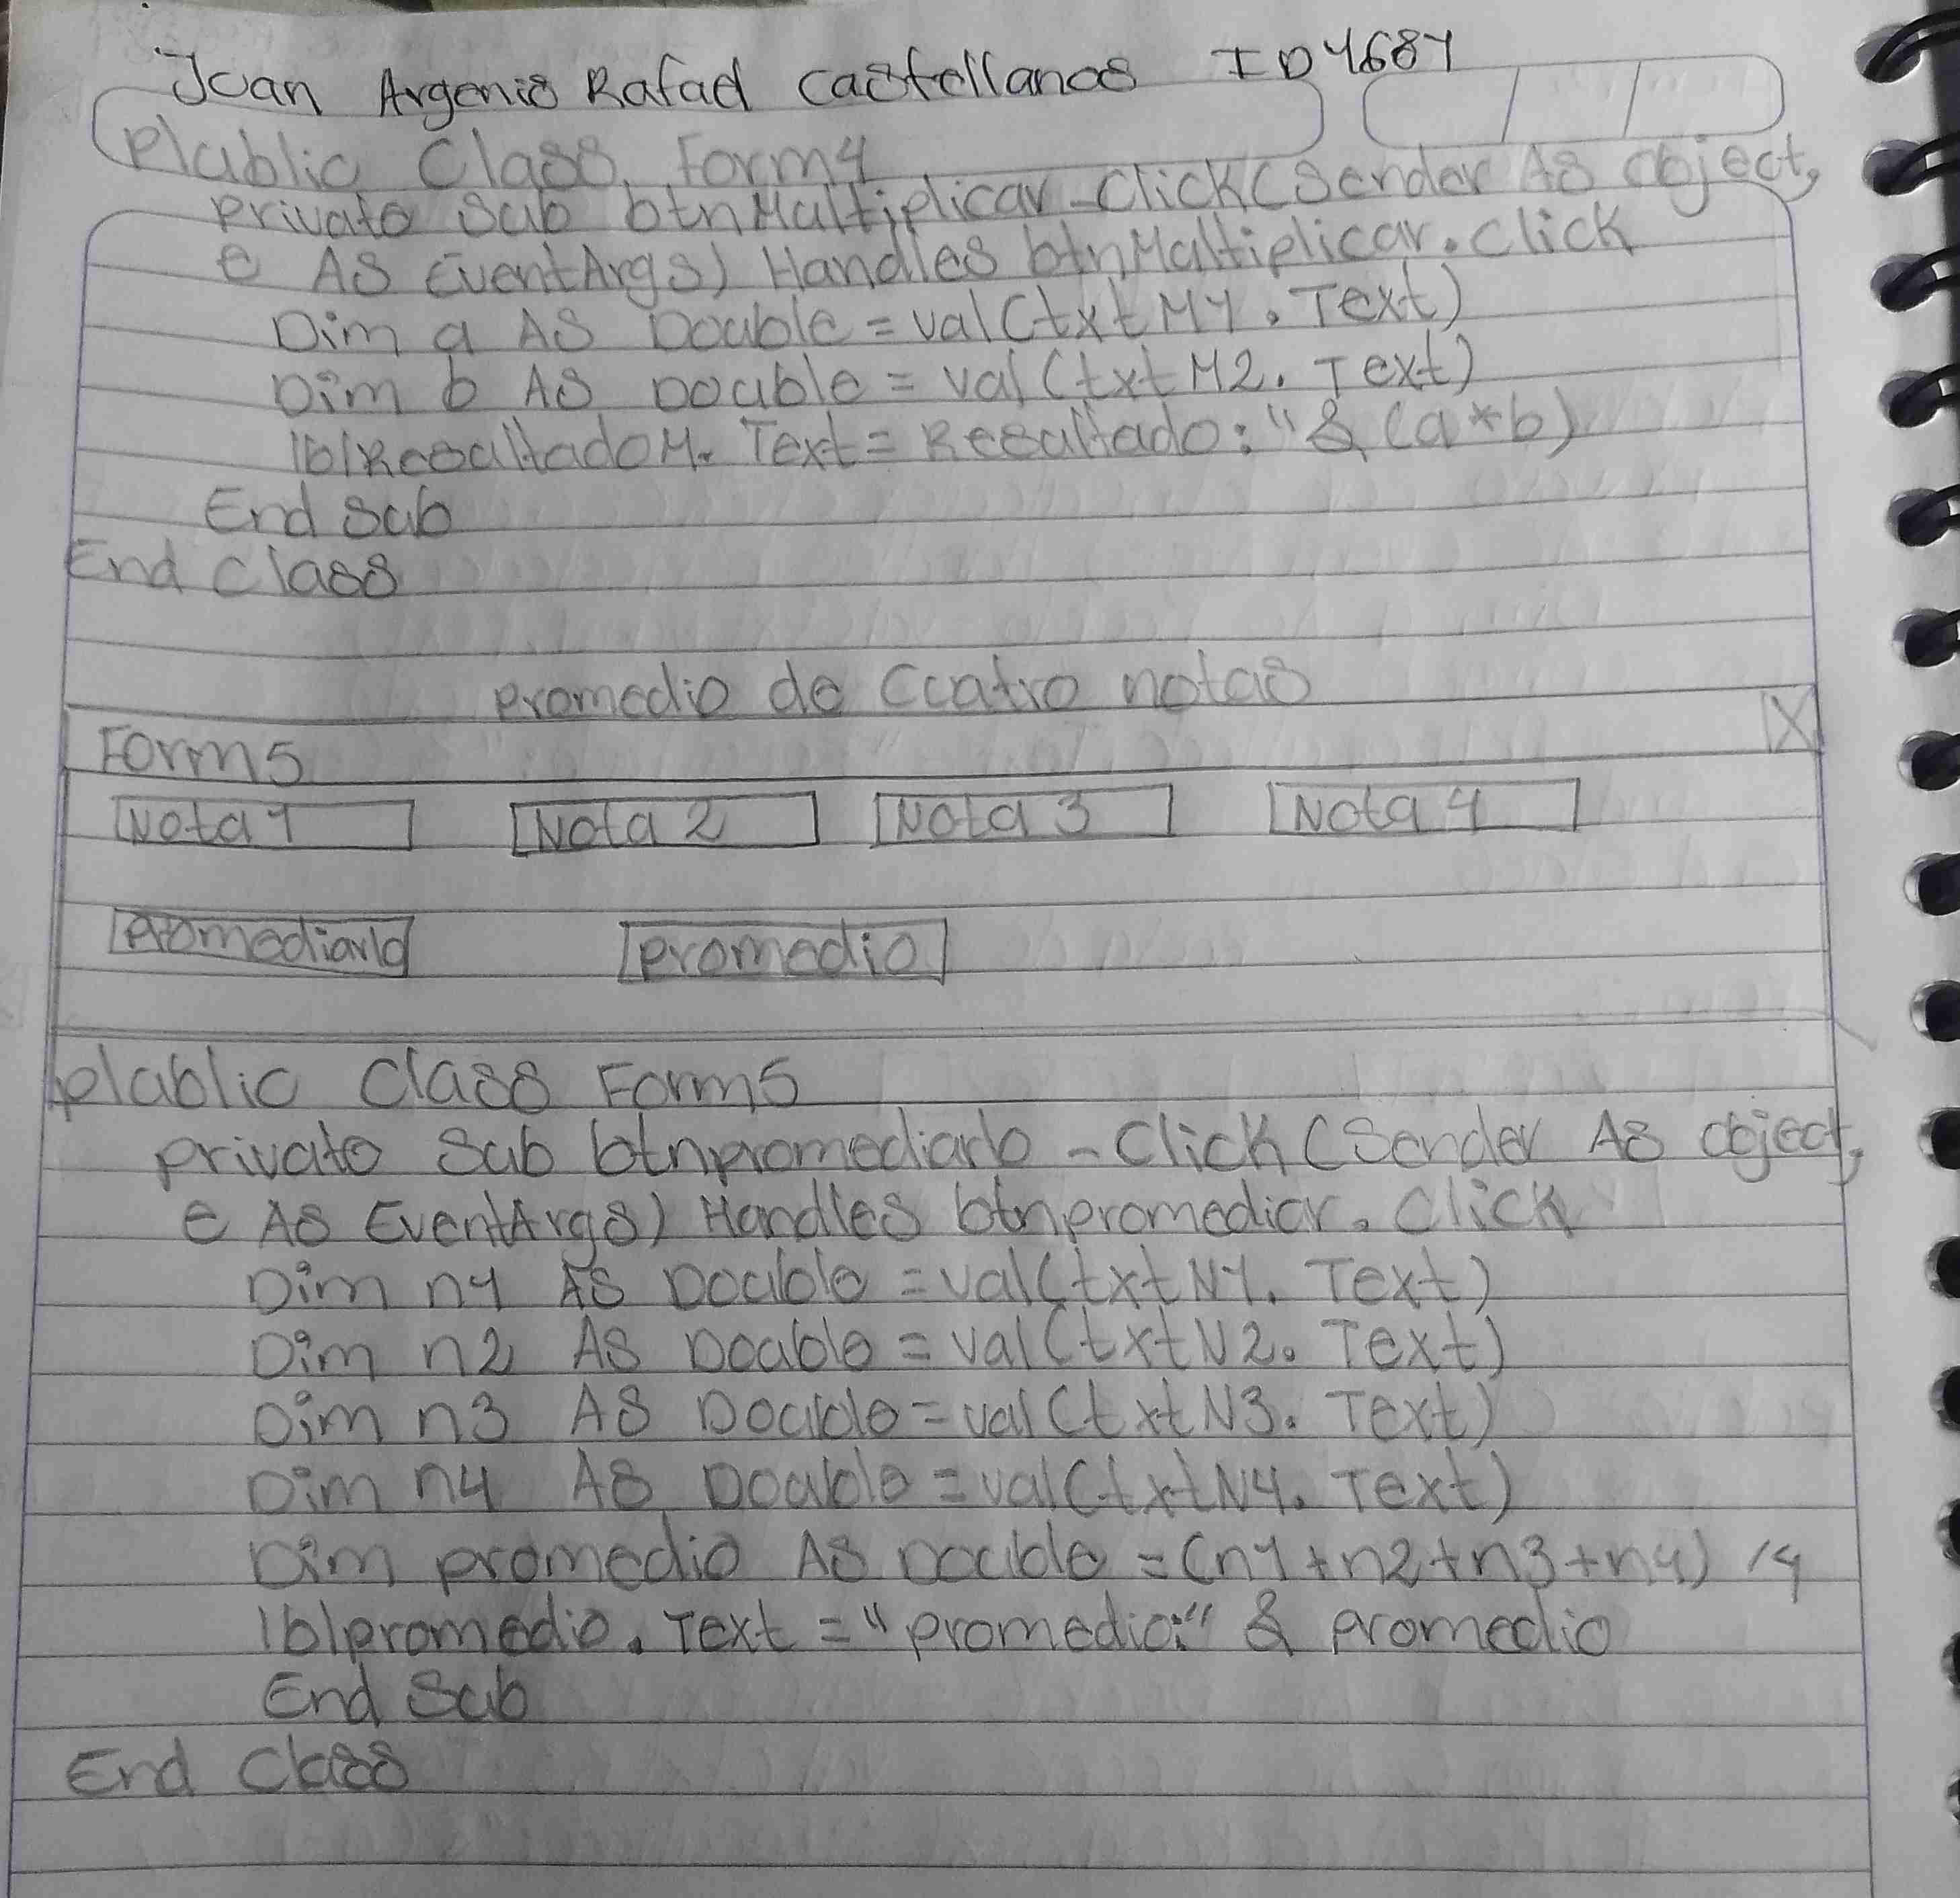 Juan Argenis Rafael Castellanos ID 4687
Plublic Class Form4
Private Sub btnMultiplicar_Click(Sender As object,
e As EventArgs) Handles btnMultiplicar.Click
Dim a As Double = val(txtM1.Text)
Dim b As Double = val(txtM2.Text)
lblResultadoM.Text = Resultado:" & (a*b)
End Sub
End Class
Promedio de Cuatro notas
X
Form5
Nota 1 Nota 2 Nota 3 Nota 4
Promediarlo promedio
Plublic Class Form5
private Sub btnpromediarlo_Click(Sender As object,
e As EventArgs) Handles btnpromediar.Click
Dim n1 As Double = val(txtN1.Text)
Dim n2 As Double = val(txtN2.Text)
Dim n3 As Double = val(txtN3.Text)
Dim n4 As Double = val(txtN4.Text)
Dim promedio As Double = (n1+n2+n3+n4) /4
lblpromedio.Text = "promedio:" & Promedio
End Sub
End Class